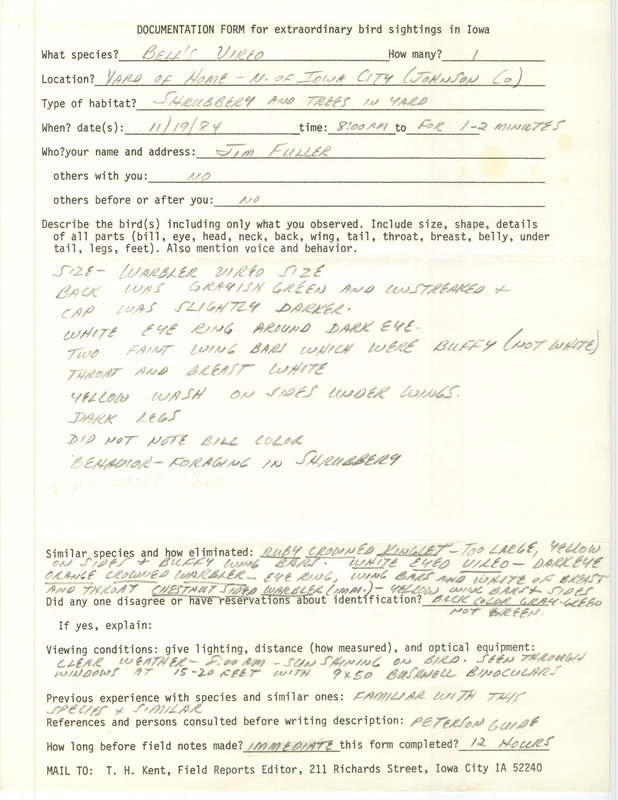 DOCUMENTATION FORM for extraordinary bird sightings in Iowa
What species? BELL'S VIREO How many? 1
Location? YARD OF HOME - N. OF IOWA CITY (JOHNSON CO)
Type of habitat? SHRUBBERY AND TREES IN YARD
When? date(s): 11/19/84 time: 8:00 AM to FOR 1-2 MINUTES
Who?your name and address: JIM FULLER
others with you: NO
others before or after you: NO
Describe the bird(s) including only what you observed. Include size, shape, details
of all parts (bill, eye, head, neck, back, wing, tail, throat, breast, belly, under
tail, legs, feet). Also mention voice and behavior.
SIZE- WARBLER VIREO SIZE
BACK WAS GRAYISH GREEN AND UNSTREAKED +
CAP WAS SLIGHTLY DARKER.
WHITE EYE RING AROUND DARK EYE.
TWO FAINT WING BARS WHICH WERE BUFFY (NOT WHITE)
THROAT AND BREAST WHITE
YELLOW WASH ON SIDES UNDER WINGS.
DARK LEGS
DID NOT NOTE BILL COLOR
BEHAVIOR- FORAGING IN SHRUBBERY
Similar species and how eliminated: RUBY CROWNED KINGLET - TOO LARGE, YELLOW
ON SIDES + BUFFY WING BARS. WHITE EYED VIREO - DARK EYE
ORANGE CROWNED WARBLER - EYE RING, WING BARS AND WHITE OF BREAST
AND THROAT CHESTNUT SIDED WARBLER (IMM.) - YELLOW WING BARS + SIDES
Did any one disagree or have reservations about identification? BACK COLOR GRAY-GREEN
NOT GREEN.
If yes, explain:
Viewing conditions: give lighting, distance (how measured), and optical equipment:
CLEAR WEATHER - 8:00 AM - SUN SHINING ON BIRD. SEEN THROUGH
WINDOWS AT 15-20 FEET WITH 9X50 BUSHNELL BINOCULARS
Previous experience with species and similar ones: FAMILIAR WITH THIS
SPECIES + SIMILAR
References and persons consulted before writing description: PETERSON GUIDE
How long before field notes made? IMMEDIATE this form completed? 12 HOURS
MAIL TO: T. H. Kent, Field Reports Editor, 211 Richards Street, Iowa City IA 52240